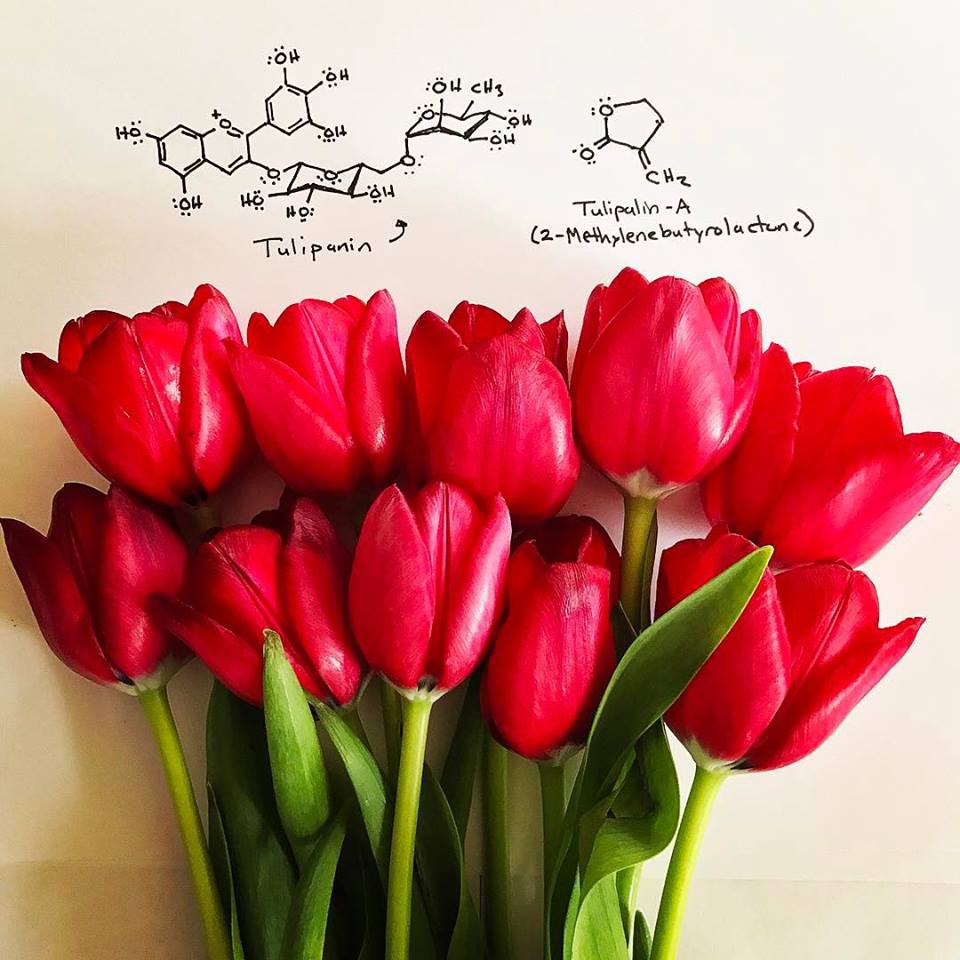 OH
OH
HO
O+
OH
OH
O
O
HO
HO
OH
O
O
OH CH3
OH
OH
Tulipanin
O
O
CH2
Tulipalin-A
(2-Methylenebutyrolactone)